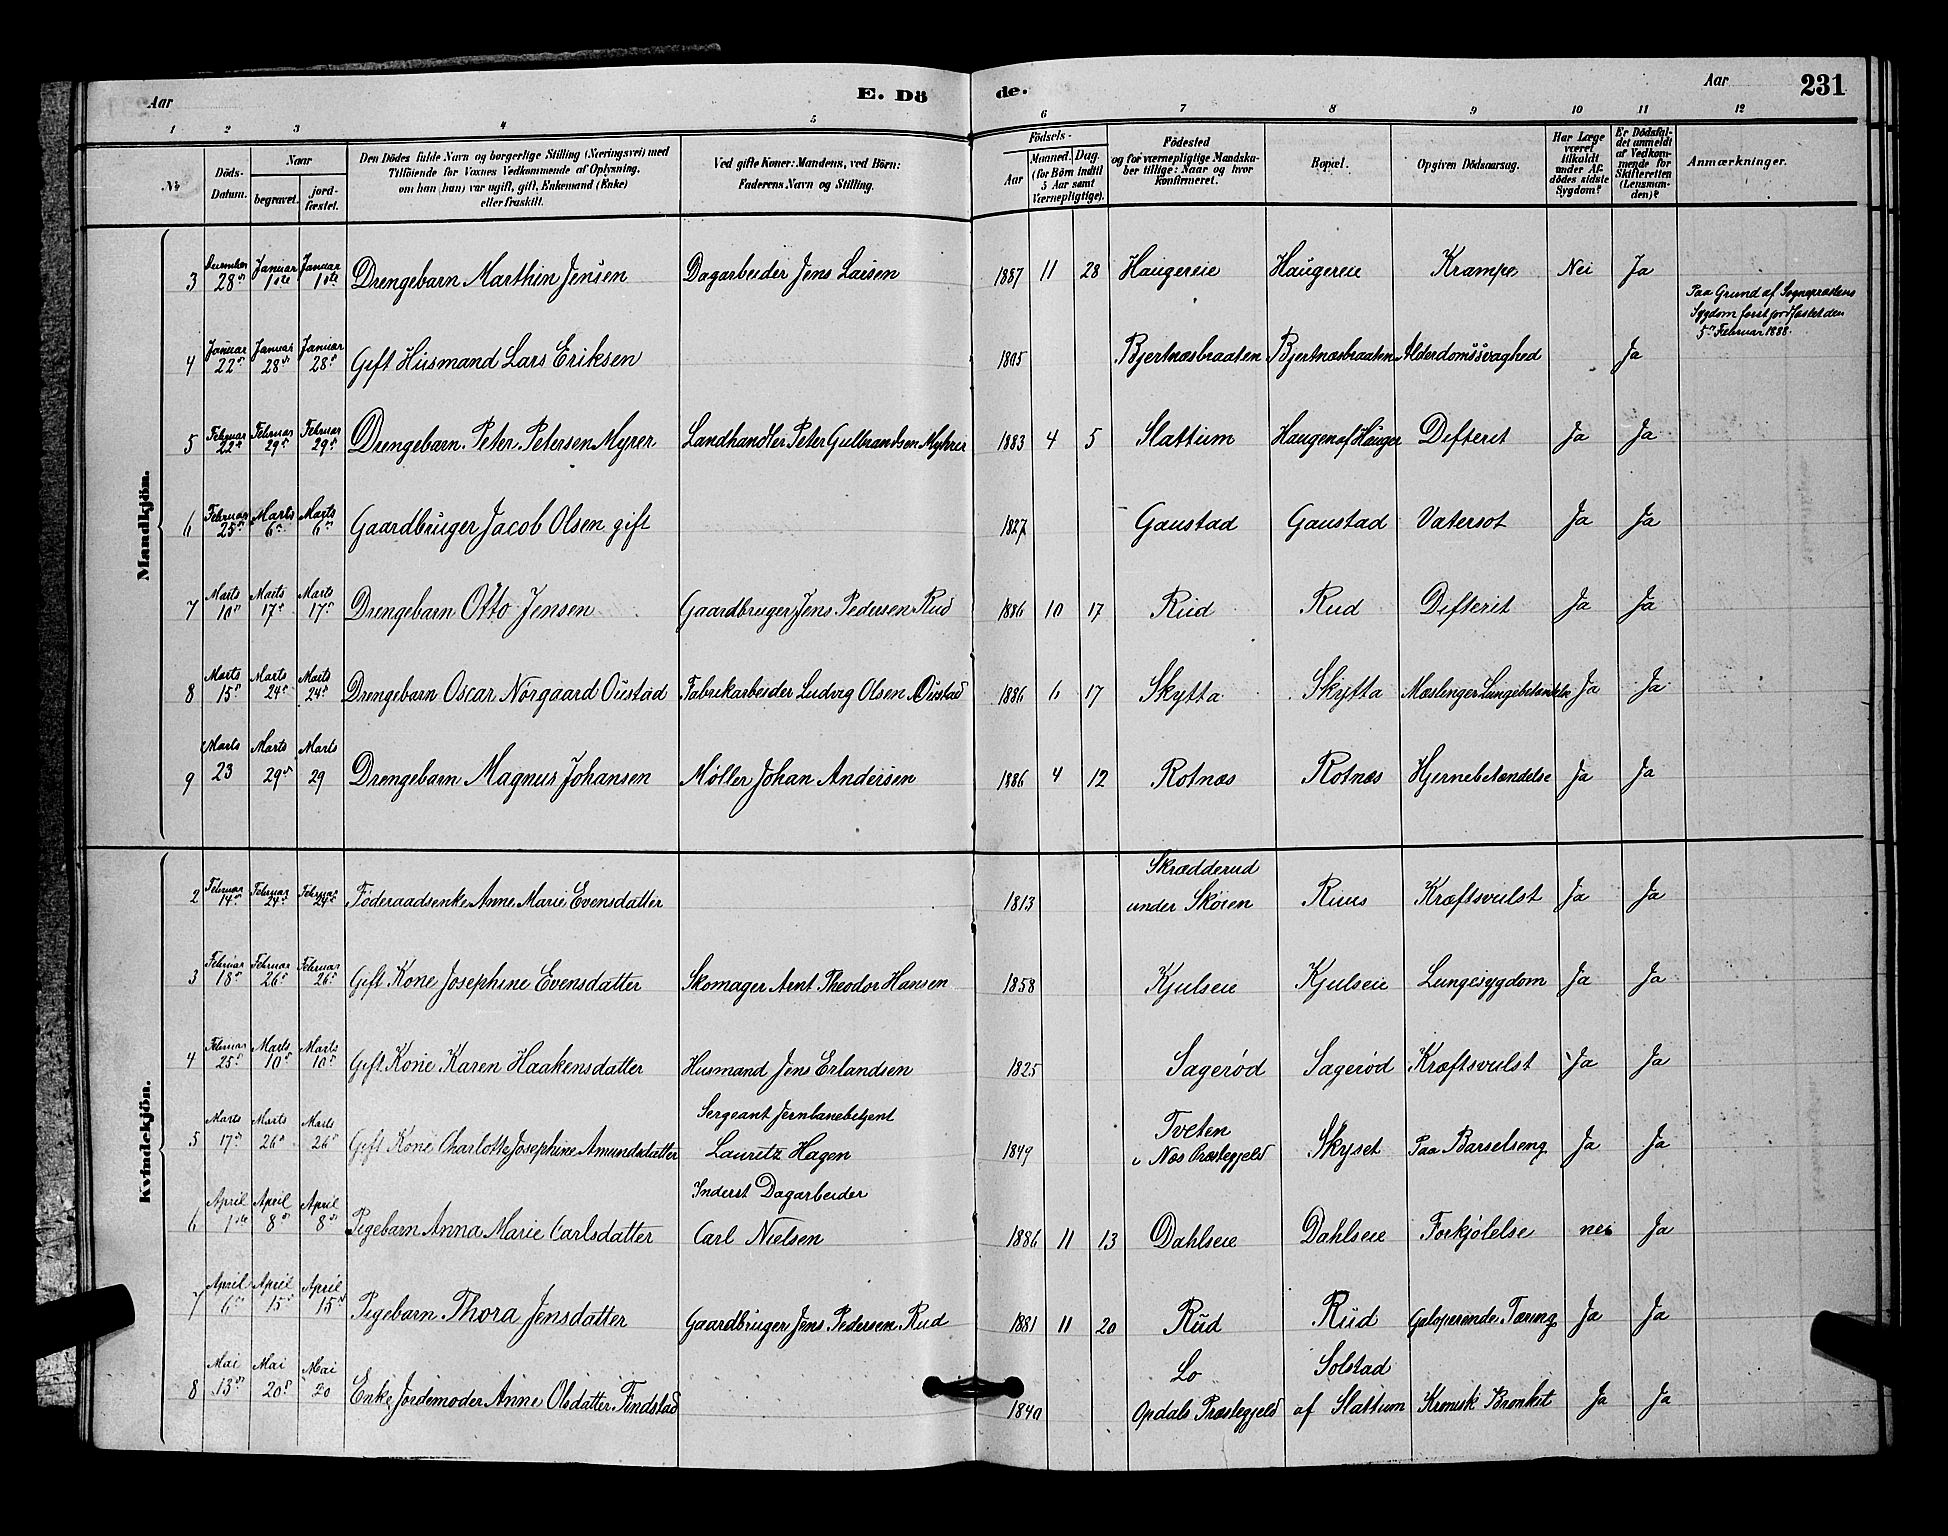 Aar
E. Dö
de.
Aar
231
1 2 3 4 5 6 7 8 9 10 11 12
No
Döds-
Datum.
Naar
begravet.
jord-
fæstet.
Den Dödes fulde Navn og borgerlige Stilling (Næringsvei) med
Tilföiende for Voxnes Vedkommende af Oplysning,
om han (hun) var ugift, gift, Enkemand (Enke)
eller fraskilt.
Ved gifte Koner: Mandens, ved Börn:
Faderens Navn og Stilling.
Födsels-
Aar
Maaned. Dag.
(for Börn indtil
5 Aar samt
Værnepligtige).
Födested
og for værnepligtige Mandska-
ber tillige: Naar og hvor
Konfirmeret.
Bopæl.
Opgiven Dödsaarsag.
Har Læge
været
tilkaldt
under Af-
dödes sidste
Sygdom?
Er Dödsfal-
det anmeldt
af Vedkom-
mende for
Skifteretten
(Lensman-
den)?
Anmærkninger.
Mandkjön.
3 December 28de Januar 1ste Januar 1ste Drengebarn Marthin Jensen Dagarbeider Jens Larsen 1887 11 28 Haugereie Haugereie Krampe Nei Ja
Paa Grund af Sognepræstens
Sygdom først jordfæstet den
5te Februar 1888.
4 Januar 22de Januar 28de Januar 28de Gift Husmand Lars Eriksen 1805 Bjertnæsbraaten Bjertnæsbraaten Alderdomssvaghed Ja
5 Februar 22de Februar 29de Februar 29de Drengebarn Peter Petersen Myrer Landhandler Peter Gulbrandsen Myhrer 1883 4 5 Slattum Haugen af Hauger Difterit Ja Ja
6 Februar 25de Marts 6te Marts 6te Gaardbruger Jacob Olsen gift 1827 Gaustad Gaustad Vatersot Ja Ja
7 Marts 10de Marts 17de Marts 17de Drengebarn Otto Jensen Gaardbruger Jens Pedersen Rud 1886 10 17 Rud Rud Difterit Ja Ja
8 Marts 15de Marts 24de Marts 24de Drengebarn Oscar Nørgaard Oustad Fabrikarbeider Ludvig Olsen Oustad 1886 6 17 Skytta Skytta Mæslinger Lungebetændelse Ja Ja
9 Marts 23 Marts 29de Marts 29 Drengebarn Magnus Johansen Møller Johan Andersen 1886 4 12 Rotnæs Rotnæs Hjernebetændelse Ja Ja
Kvindekjön.
Skrædderud
2 Februar 14de Februar 24de Februar 24de Føderaadsenke Anne Marie Evensdatter 1813 under Skøien Ruus Kræftsvulst Ja Ja
3 Februar 18de Februar 26de Februar 26de Gift Kone Josephine Evensdatter Skomager Arnt Theodor Hansen 1858 Kjulseie Kjulseie Lungesygdom Ja Ja
4 Februar 25de Marts 10de Marts 10de Gift Kone Karen Haakensdatter Husmand Jens Erlandsen 1825 Sagerød Sagerød Kræftsvulst Ja Ja
Sergeant Jernbanebetjent Tveten
5 Marts 17de Marts 26de Marts 26de Gift Kone Charlotte Josephine Amundsdatter Lauritz Hagen 1849 i Næs Præstegjeld Skyset Paa Barselseng Ja Ja
Inderst Dagarbeider
6 April 1ste April 8de April 8de Pigebarn Anna Marie Carlsdatter Carl Nielsen 1886 11 13 Dahlseie Dahlseie Forkjølelse nei Ja
7 April 6te April 15de April 15de Pigebarn Thora Jensdatter Gaardbruger Jens Pedersen Rud 1881 11 20 Rud Rud Galoperende Tæring Ja Ja
Lo Solstad
8 Mai 13de Mai 20de Mai 20 Enke Jordemoder Anne Olsdatter Findstad 1840 Opdals Præstegjeld af Slattum Kronisk Bronkit Ja Ja